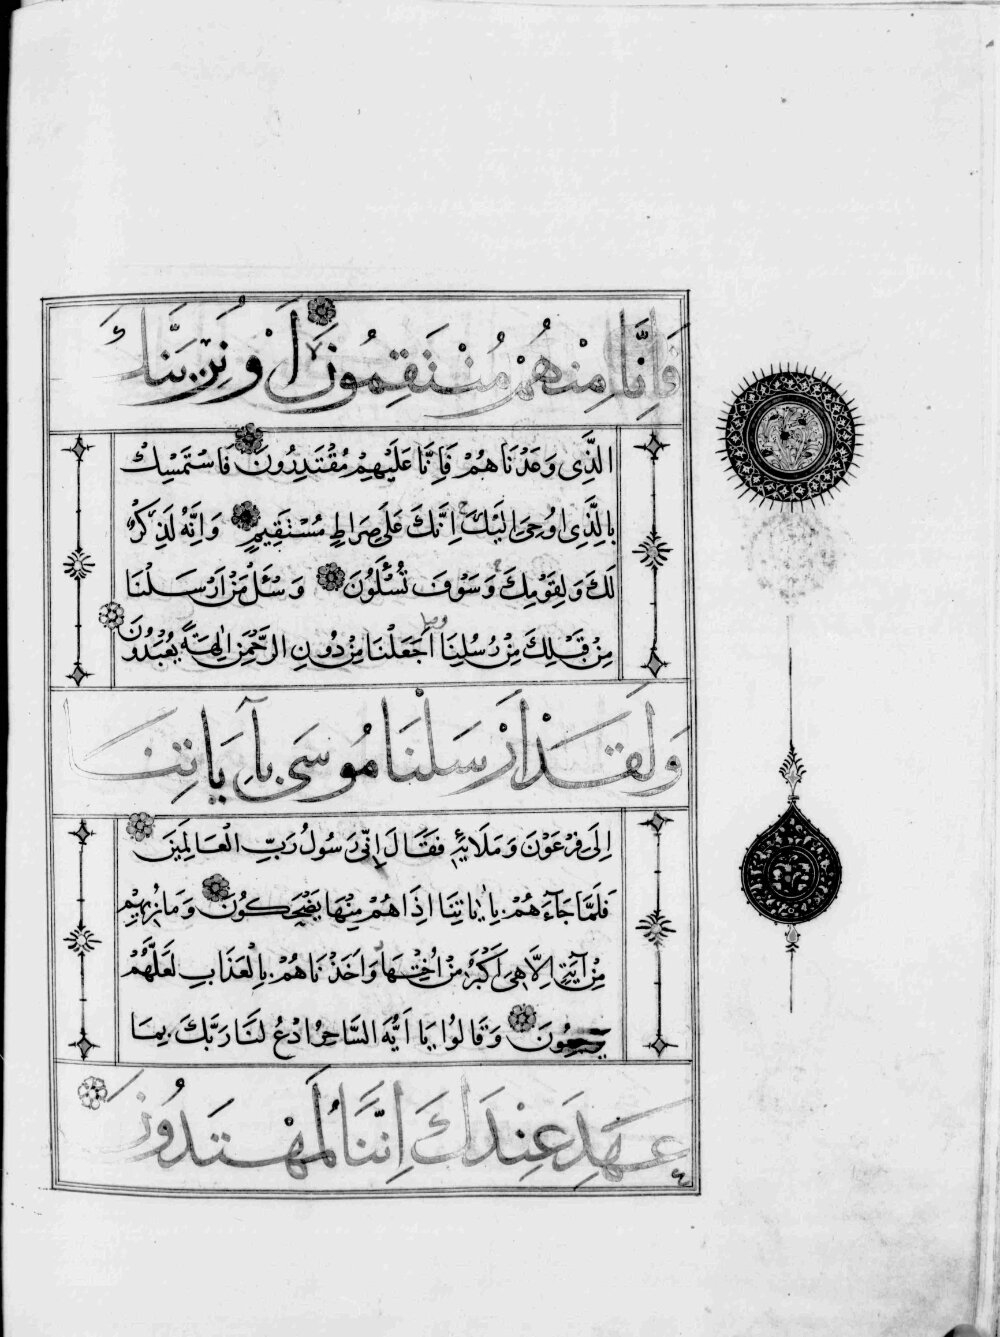 فَاِنَّا مِنْهُمْ مُنْتَقِمُونَ اَوْ نُرِيَنَّكَ
الَّذِى وَعَدْنَاهُمْ فَاِنَّا عَلَيْهِمْ مُقْتَدِرُونَ فَاسْتَمْسِكْ
بِالَّذِى اُوحِىَ اِلَيْكَ اِنَّكَ عَلَى صِرَاطٍ مُسْتَقِيمٍ وَاِنَّهُ لَذِكْرٌ
لَكَ وَلِقَوْمِكَ وَسَوْفَ تُسْئَلُونَ وَسْئَلْ مَنْ اَرْسَلْنَا
مِنْ قَبْلِكَ مِنْ رُسُلِنَا اَجَعَلْنَا مِنْ دُونِ الرَّحْمٰنِ اٰلِهَةً يُعْبَدُونَ
وَلَقَدْ اَرْسَلْنَا مُوسَى بِآيَاتِنَا
اِلَى فِرْعَوْنَ وَمَلَائِهِ فَقَالَ اِنِّى رَسُولُ رَبِّ الْعَالَمِينَ
فَلَمَّا جَآءَهُمْ بِاٰيَاتِنَا اِذَا هُمْ مِنْهَا يَضْحَكُونَ وَمَا نُرِيهِمْ
مِنْ آيَةٍ اِلَّا هِىَ اَكْبَرُ مِنْ اُخْتِهَا وَاَخَذْنَاهُمْ بِالْعَذَابِ لَعَلَّهُمْ
يَرْجِعُونَ وَقَالُوا يَا اَيُّهَ السَّاحِرُ ادْعُ لَنَا رَبَّكَ بِمَا
عَهِدَ عِنْدَكَ اِنَّنَا لَمُهْتَدُونَ